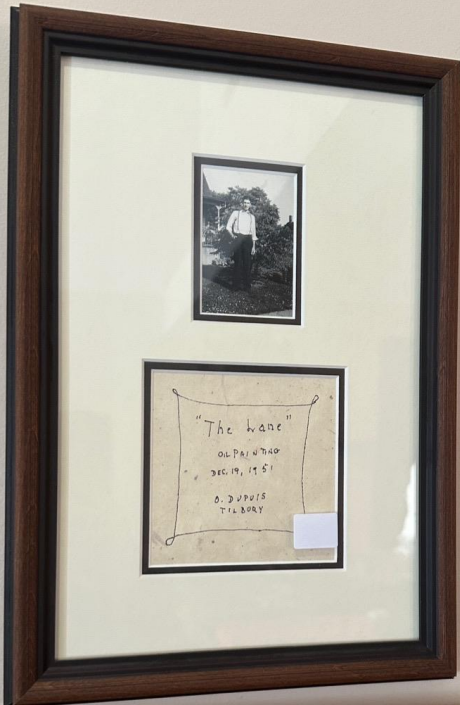 "The Lane"
OIL PAINTING
DEC. 19, 1951
O. DUPUIS
TILBURY